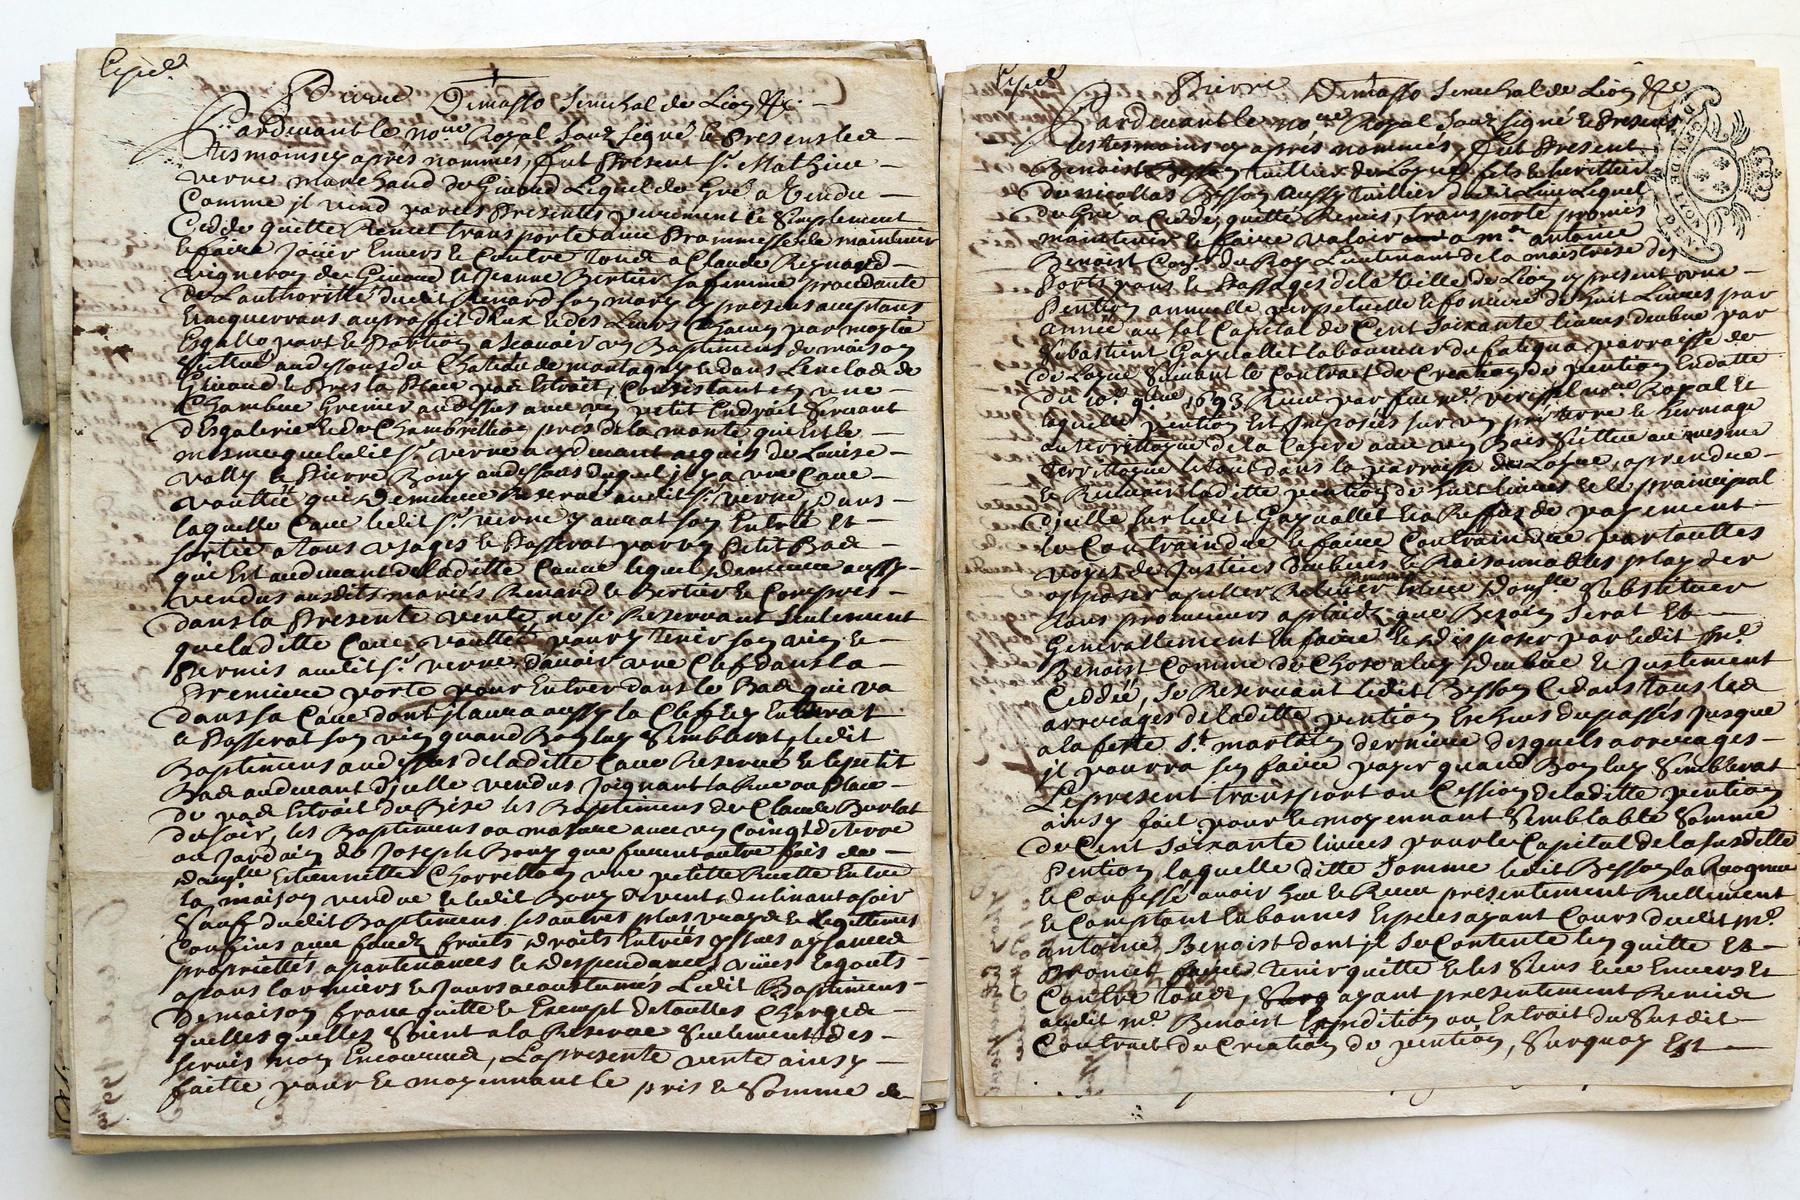 Expédié
Pierre Dimasso Senechal de Lion &c
Pardevant le no.re Royal Sous signé & presens les
tesmoins cy aprés nommés, fut Present s.r Mathieu
verne marchand de Givord Lequel de Gré a vendu
Comme jl vend par ces Presentes purement & Simplement
Cedde quitte Remet transporte avec Prommesse de maintenir
& faire Joüir Envers & Contre tous a Claude Reynard
vigneron de Givord & Jeanne Bertier sa femme procedante
de L'authoritté dudit Renard son mary cy presens acceptans
& acquerrans au proffit d'Eux & des Leurs Chacun par moytie
Egalle part & Portion a Scavoir un Baptimens de maison
Scittué au dessous du Chateau de montagny & dans L'enclos de
Givord & Pres la Place par Extrait, Consistant en une
Chambre Grenier au dessus avec un petit Endroit Servant
d'Esgalerie & de Chambrillion pres de la monté qui Est le
mesme que ledit s.r verne a cy devant acquis de Louise
vally & Pierre Bouy au dessous duquel jl y a une Cave
voutée qui Demeure Reservé audit s.r verne, dans
laquelle Cave ledit s.r verne y aurat son Entrée Et
sortie a tous usages & Passerat par un Petit Bas
qui Est au devant de laditte Cave lequel demeure aussy
vendus ausdits mariés Renard & Bertier & Compris
dans la Presente vente, ne se Reservant Seulement
que laditte Cave voutteé pour y tenir son vin &
Permis audit s.r verne d'avoir une Clef dans la
Premiere porte pour Entrer dans le Bas qui va
dans sa Cave dont jl aura aussy la Clef & y Entrerat
& Passerat son vin quand Bon luy Semblerat, ledit
Baptimens au dessus de laditte Cave Reservé & le petit
Bas au devant D'jcelle vendus Joignant la Rue ou Place
du par Extrait de Bise les Baptimens de Claude Burlat
du soir, les Baptimens ou masure avec un Coing de terre
ou Jardin de Joseph Bouy que furent autre fois de
Estiennette Charretton une petitte Ruette Entre
la maison vendue & ledit Bouy de vent declinant a soir
Sauf dudit Baptimens ses autres plus vrays & Legittimes
Confins avec fonds fruits droits Entrées yssues aysances
proprietés apartenances & despendances viües Esgouts
a pans larmiers & Jours acoustumés Ledit Baptimens
de maison franc quitte & Exempt de touttes Charges
quelles quelles Soient a la Reserve Seulement des
servis non Encourrus, La presente vente ainsy
faitte pour & moyennant le pris & Somme de
Expédié
Pierre Dimasso Senechal de Lion &c
Pardevant le no.re Royal Sous signé & Presens
les tesmoins cy aprés nommés, fut Present
Benoist Besson tuillier de Loyre fils & herittier
de Nicollas Besson aussy tuillier dudit Lieu Lequel
de Gré a Cedde, quitte Remis, transporte promis
maintenir & faire valoir a m.re antoine
Benoist Con.er du Roy Lieutenant de la maistrise des
Ports ponts & Passages de la ville de Lion cy present une
Pention annuelle perpetuelle & fonciere de huit Livres par
année au sol Capital de Cent Soixante livres deube par
Sebastient Gapallet laboureur du fatigna parroisse de
de Loyre Suivant le Contrat de Creation de pention En datte
du 10.e 9.bre 1693 Receu par feu m.e verissel no.re Royal Et
laquelle pention Est Jmposée sur un pré terre & hermage
au territtoyre de la Cayere avec un Bois Scittué au mesme
territtoyre le tout dans la parroisse de Loyre, a prendre
& Recevoir laditte pention de huit livres & le prainçipal
djcelle sur ledit Gapallet & a Reffus de payement
le Contraindre & faire Contraindre par touttes
voyes de Justices deubües & Raisonnables playder
opposer apeller Relever Elire Domille Substituer
tous procureurs a plaids que Besoin Serat Et
Generallement En faire & disposer par ledit m.e
Benoist Comme de Chose a luy deubue & Justement
Ceddée, Se Reservant ledit Besson Cedant tous les
arrerages de laditte pention Escheus du passés jusque
a la feste S.t martin derniere desquels arrerages
jl pourra sen faire payer quand Bon luy Semblerat
Le present transport ou Cession de laditte pention
ainsy fait pour & moyennant Semblable Somme
de Cent Soixante livres pour le Capital de la susditte
Pention laquelle ditte Somme ledit Besson la Recognue
& Confessé avoir heu & Receu presentement Reellement
& Comptant En bonnes Especes ayant Cours dudit m.e
antoine Benoist dont jl Se Contente len quitte Et
Promet faire tenir quitte & les Siens Envers Et
Contre tous, ayant presentement Remis
audit m.e Benoist Expedition ou Extrait du Susdit
Contrat de Creation de pention, Surquoy Est
GEN DE LYON